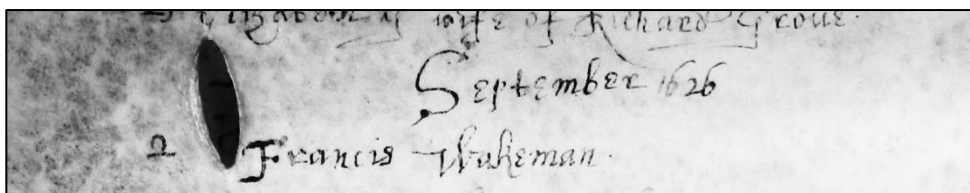 Elizabeth yͤ wife of Richard Grove.
September 1626
2 Francis Wakeman.